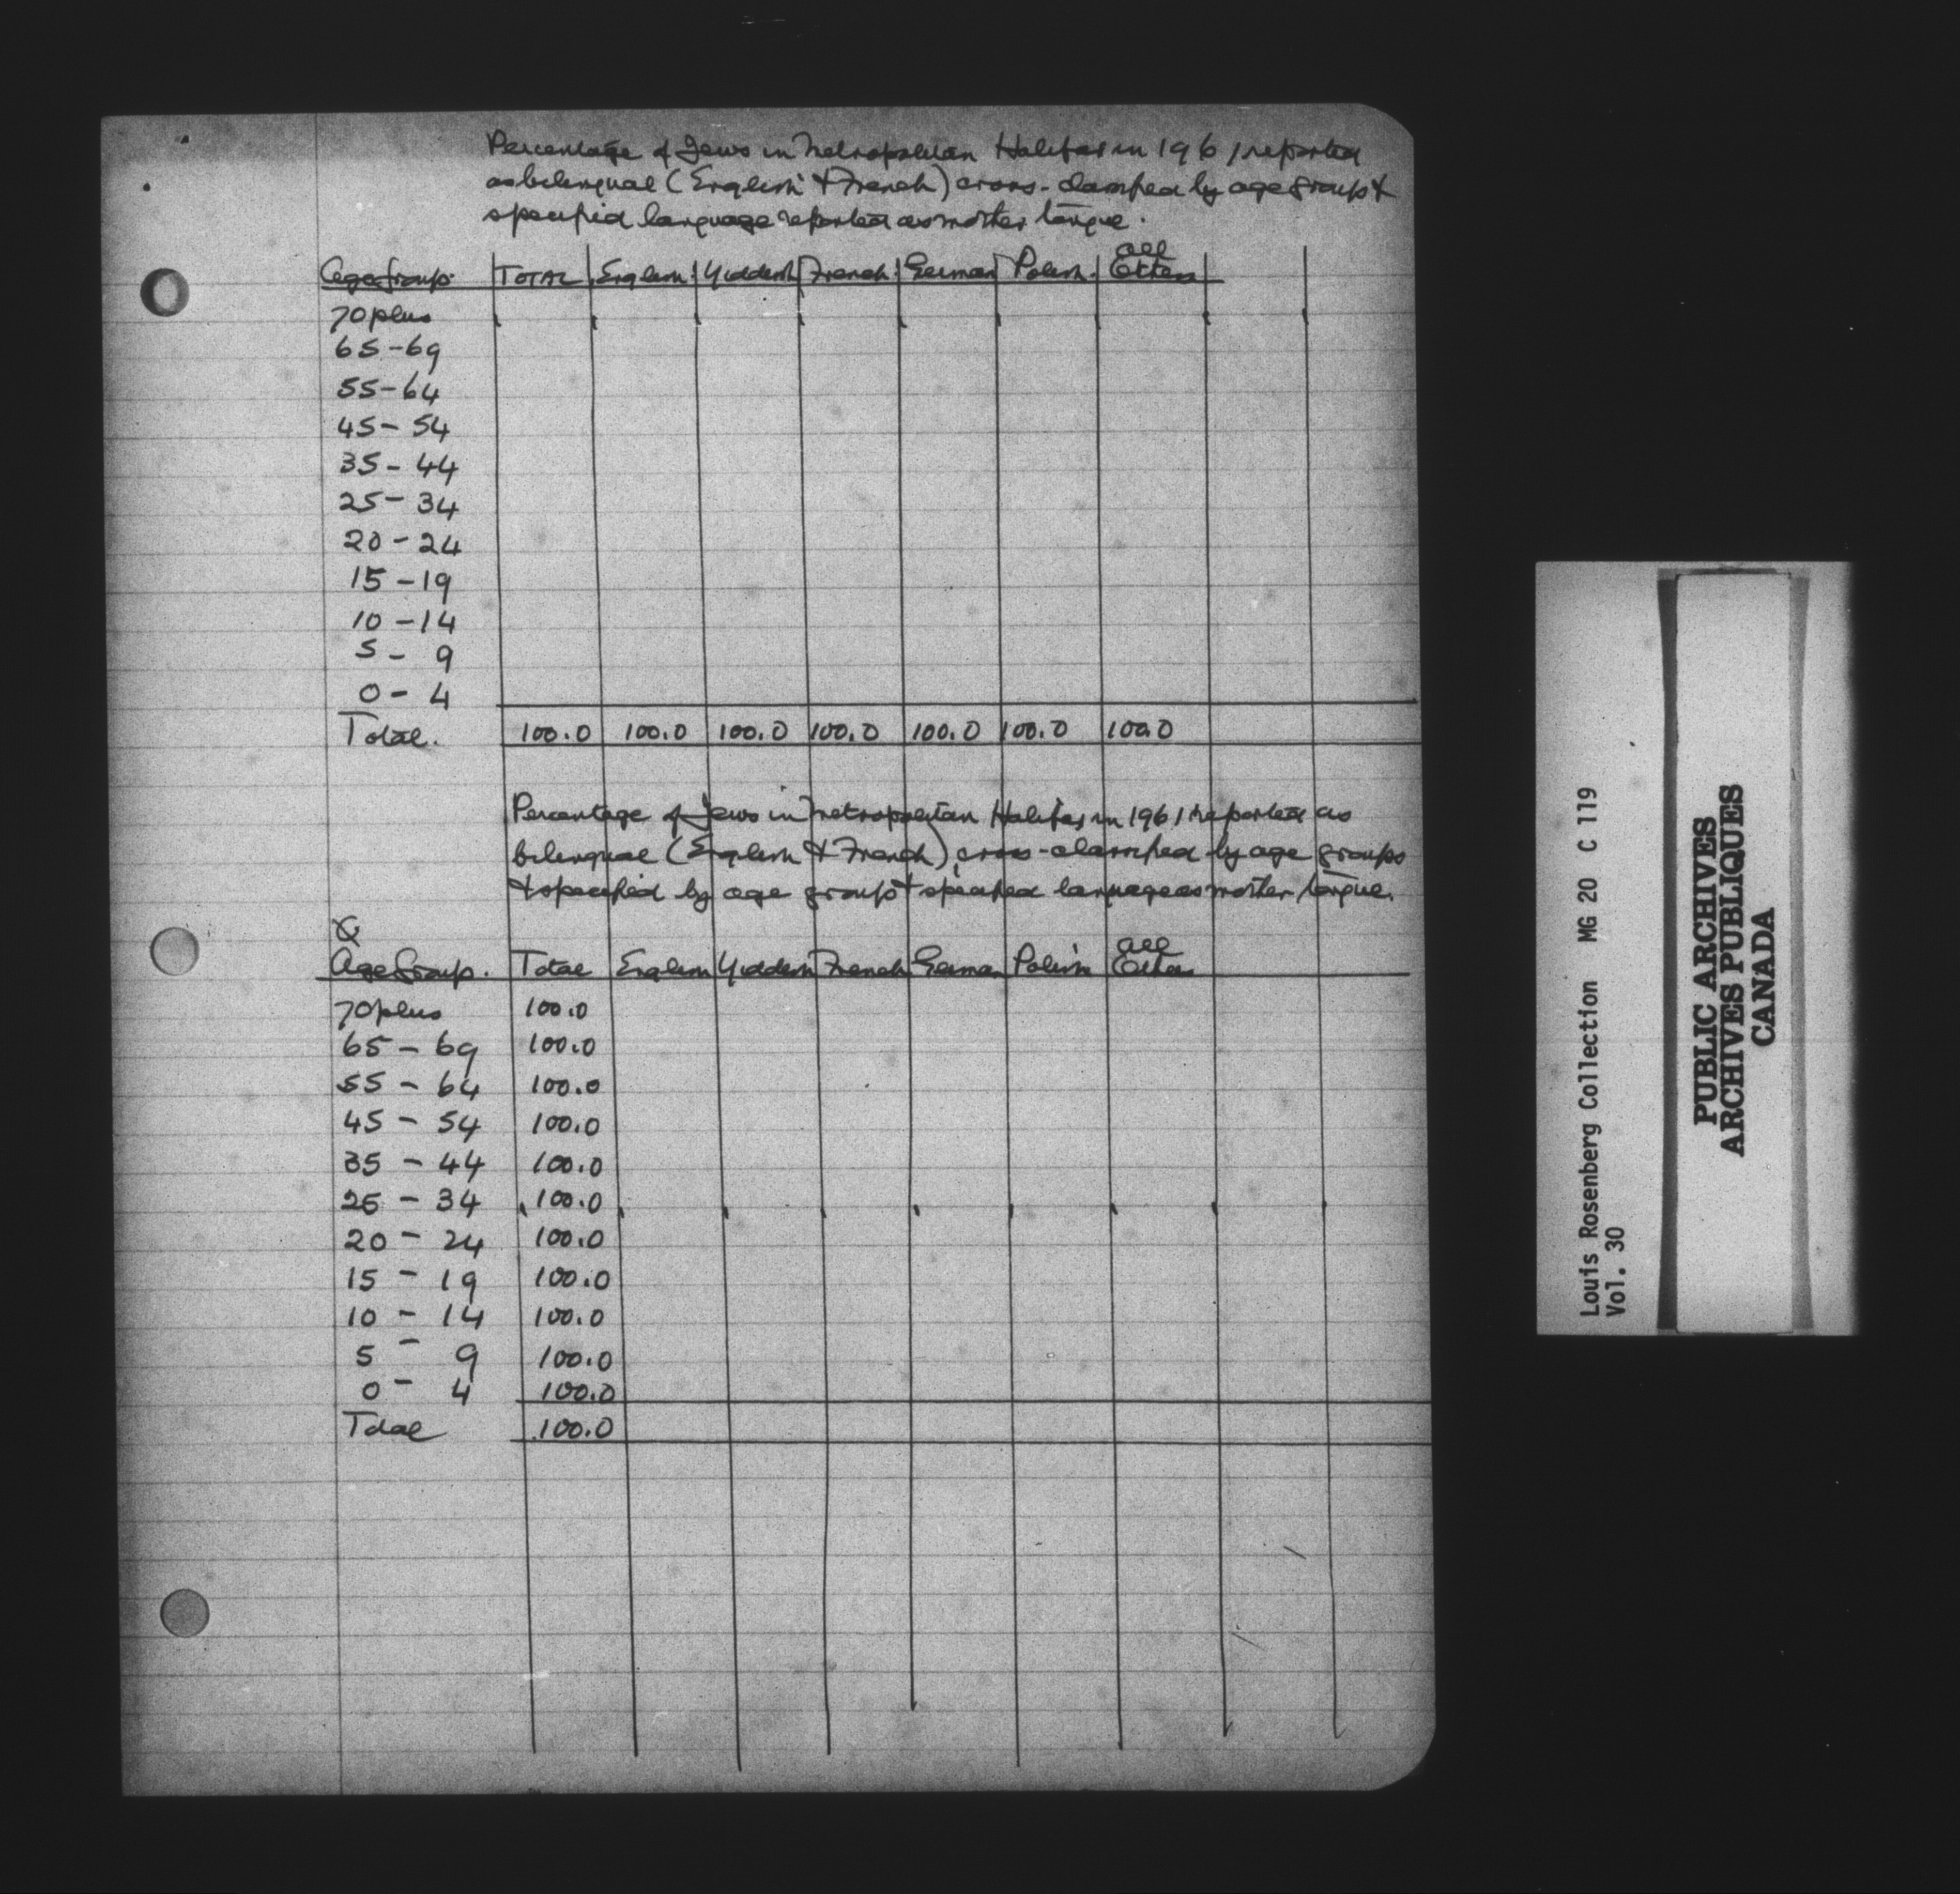 Percentage of Jews in Metropolitan Halifax in 1961 reported
as bilingual (English & French) cross-classified by age group &
specified language reported as mother tongue.
Age Group. TOTAL English Yiddish French German Polish All Others
70 plus
65-69
55-64
45-54
35-44
25-34
20-24
15-19
10-14
5-9
0-4
Total. 100.0 100.0 100.0 100.0 100.0 100.0 100.0
Percentage of Jews in Metropolitan Halifax in 1961 reported as
bilingual (English & French) cross-classified by age groups
& specified by age group & specified language as mother tongue.
Age Group. Total English Yiddish French German Polish All Others
70 plus 100.0
65-69 100.0
55-64 100.0
45-54 100.0
35-44 100.0
25-34 100.0
20-24 100.0
15-19 100.0
10-14 100.0
5-9 100.0
0-4 100.0
Total 100.0
Louis Rosenberg Collection MG 20 C 119
Vol. 30
PUBLIC ARCHIVES
ARCHIVES PUBLIQUES
CANADA